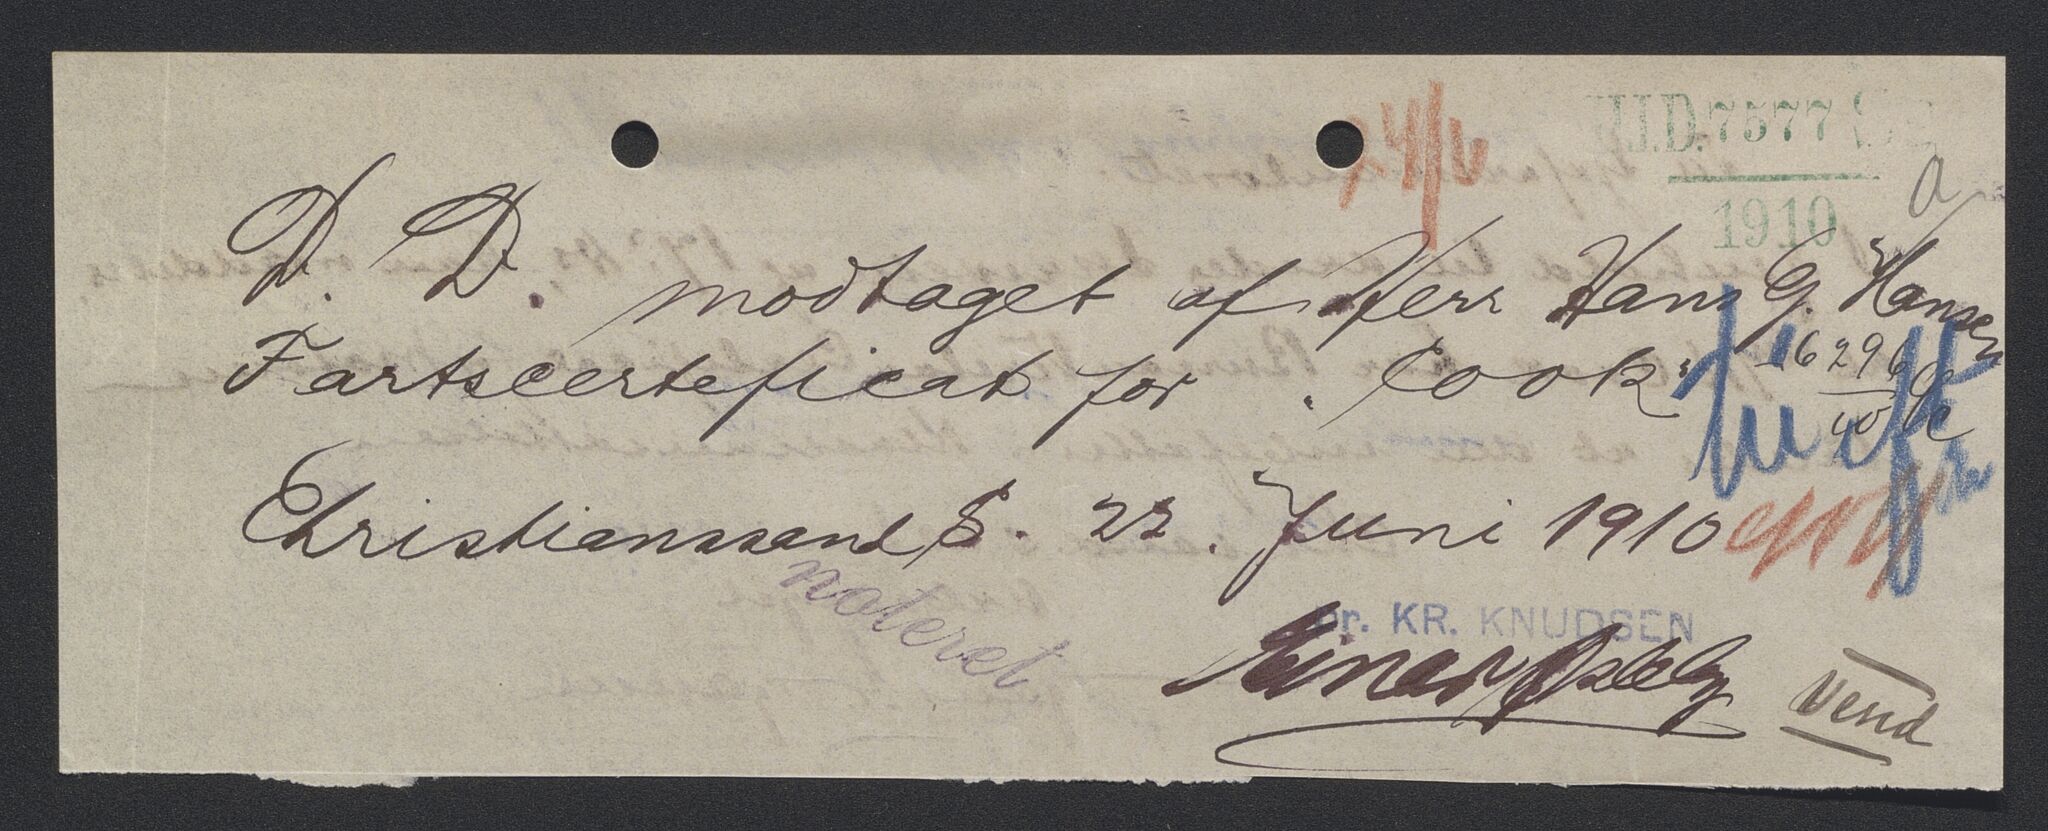 J.D. 7577
1910
24/6
a
D. D. modtaget af Herr Hans G. Hansen
Fartscerteficat for "Cook"
16296
10
Christianssand S. 22. Juni 1910
noteret
pr. KR. KNUDSEN
Einar
Vend